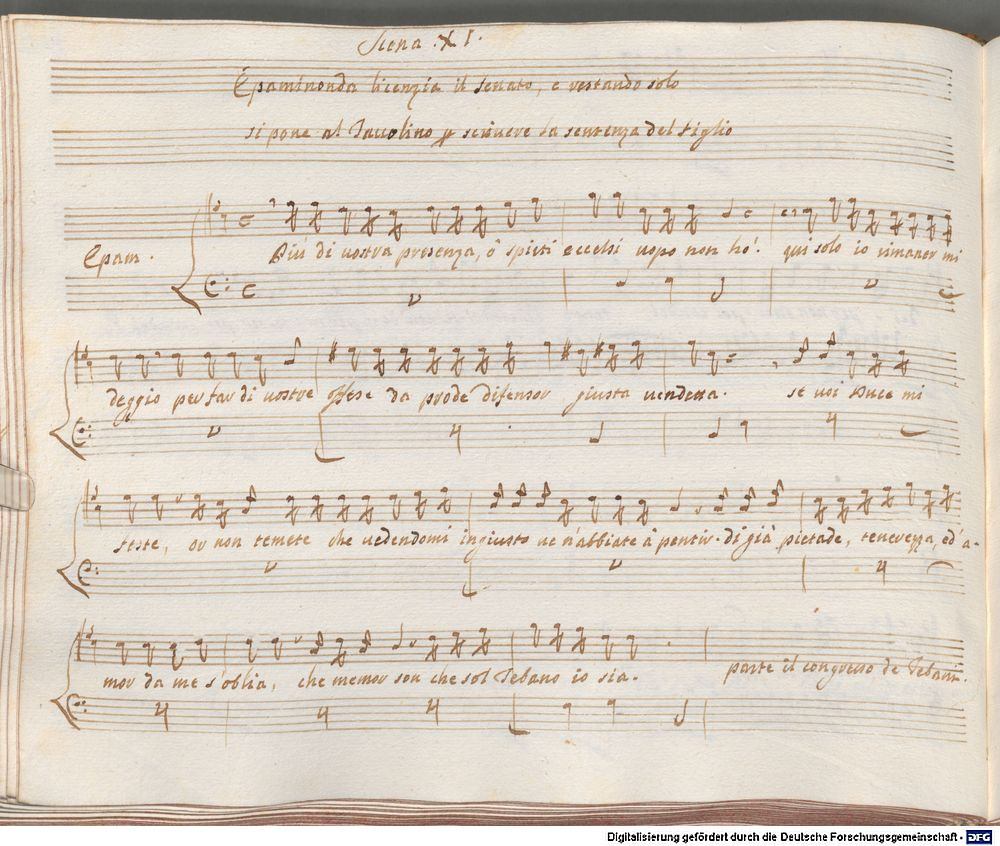 Scena . XI .
Epaminonda licenzia il senato, e restando solo
si pone al Tavolino p scrivere la sentenza del figlio
Epam . Più di vostra presenza, ò spirti eccelsi uopo non hò . qui solo io rimaner mi
deggio per far di vostre offese da prode difensor giusta vendetta . se voi Duce mi
feste, or non temete che vedendomi ingiusto ve n'abbiate à pentir . di già pietade, tenerezza, ed'a-
mor da me s'oblia, che memor son che sol Tebano io sia .
parte il congresso de Tebani .
Digitalisierung gefördert durch die Deutsche Forschungsgemeinschaft - DFG